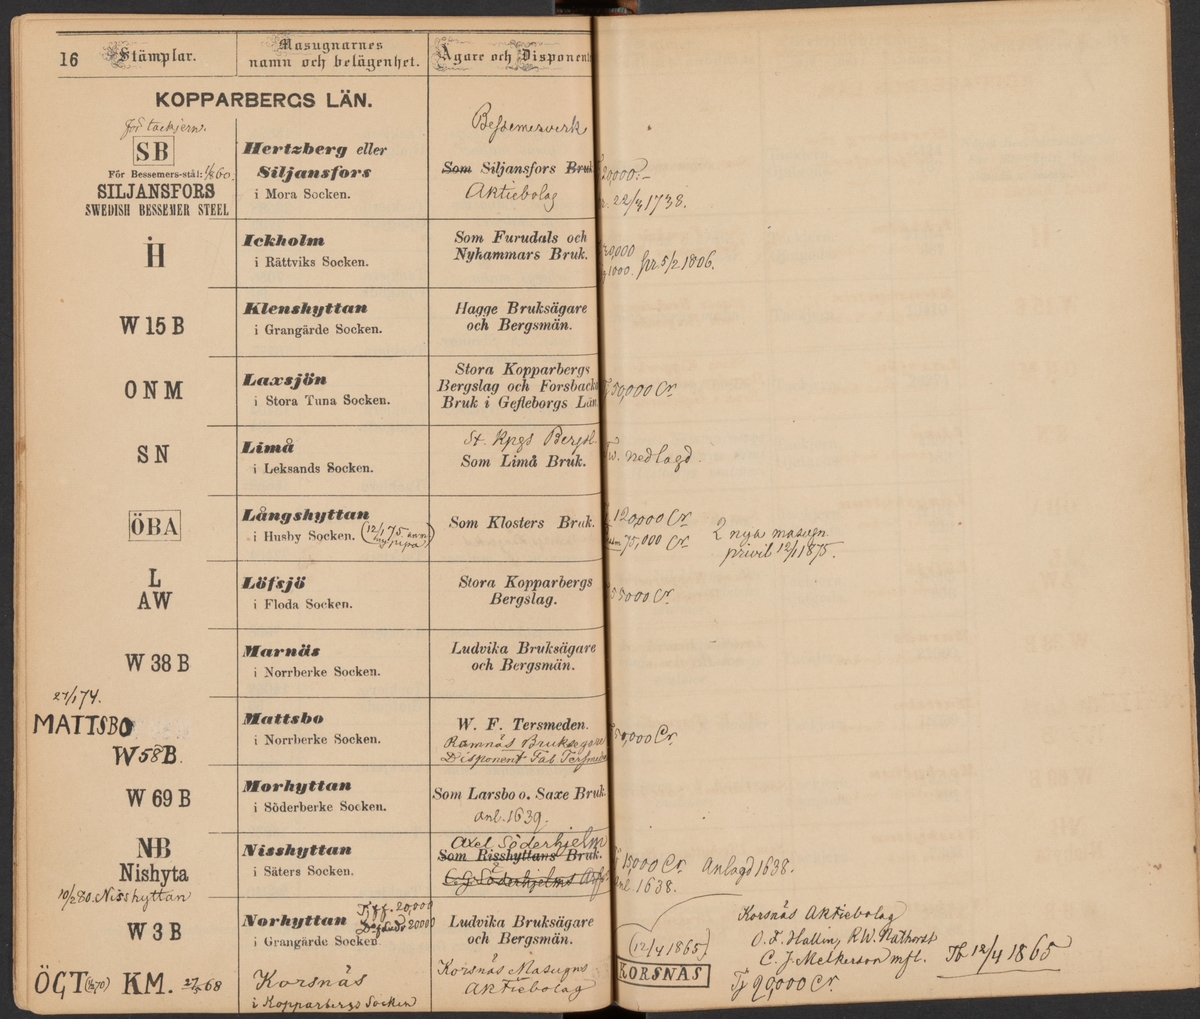 16 Stämplar.
Masugnarnes
namn och belägenhet.
Ägare och Disponent
KOPPARBERGS LÄN.
för tackjern.
SB
För Bessemers-stål:
SILJANSFORS
SWEDISH BESSEMER STEEL
Hertzberg eller
Siljansfors
i Mora Socken.
Bessemerverk
Som Siljansfors Bruk
Aktiebolag
20,000.-
22/3 1738.
H
Ickholm
i Rättviks Socken.
Som Furudals och
Nyhammars Bruk.
pr. 5/2 1806.
W 15 B
Klenshyttan
i Grangärde Socken.
Hagge Bruksägare
och Bergsmän.
O N M
Laxsjön
i Stora Tuna Socken.
Stora Kopparbergs
Bergslag och Forsbacka
Bruk i Gefleborgs Län.
50,000 Cr.
S N
Limå
i Leksands Socken.
St. Kpgs Bergsl.
Som Limå Bruk.
nedlagd.
ÖBA
Långshyttan
i Husby Socken.
Som Klosters Bruk.
120,000 Cr
75,000 Cr
2 nya masugn.
privil 12/1 1875.
L
AW
Löfsjö
i Floda Socken.
Stora Kopparbergs
Bergslag.
55000 Cr.
W 38 B
Marnäs
i Norrberke Socken.
Ludvika Bruksägare
och Bergsmän.
27/1 74.
MATTSBO
W 58 B.
Mattsbo
i Norrberke Socken.
W. F. Tersmeden.
Ramnäs Bruksegare
Disponent Fab. Tersmeden
W 69 B
Morhyttan
i Söderberke Socken.
Som Larsbo o. Saxe Bruk.
anl. 1639.
NB
Nishyta
10/2 80. Nisshyttan
Nisshyttan
i Säters Socken.
Axel Söderhjelm
Som Risshyttans Bruk.
C. G. Söderhjelms
15,000 Cr. Anlagd 1638.
anl. 1638.
W 3 B
Norhyttan
i Grangärde Socken.
Tjff. 20,000
20000
Ludvika Bruksägare
och Bergsmän.
ÖGT KM. 27/5 68
Korsnäs
i Kopparbergs Socken
Korsnäs Masugns
Aktiebolag
(12/4 1865)
KORSNÄS
Korsnäs Aktiebolag
O. F. Hallin, R W. Nathorst
C. J. Melkerson mfl. Tb 12/4 1865
Tj 90,000 Cr.